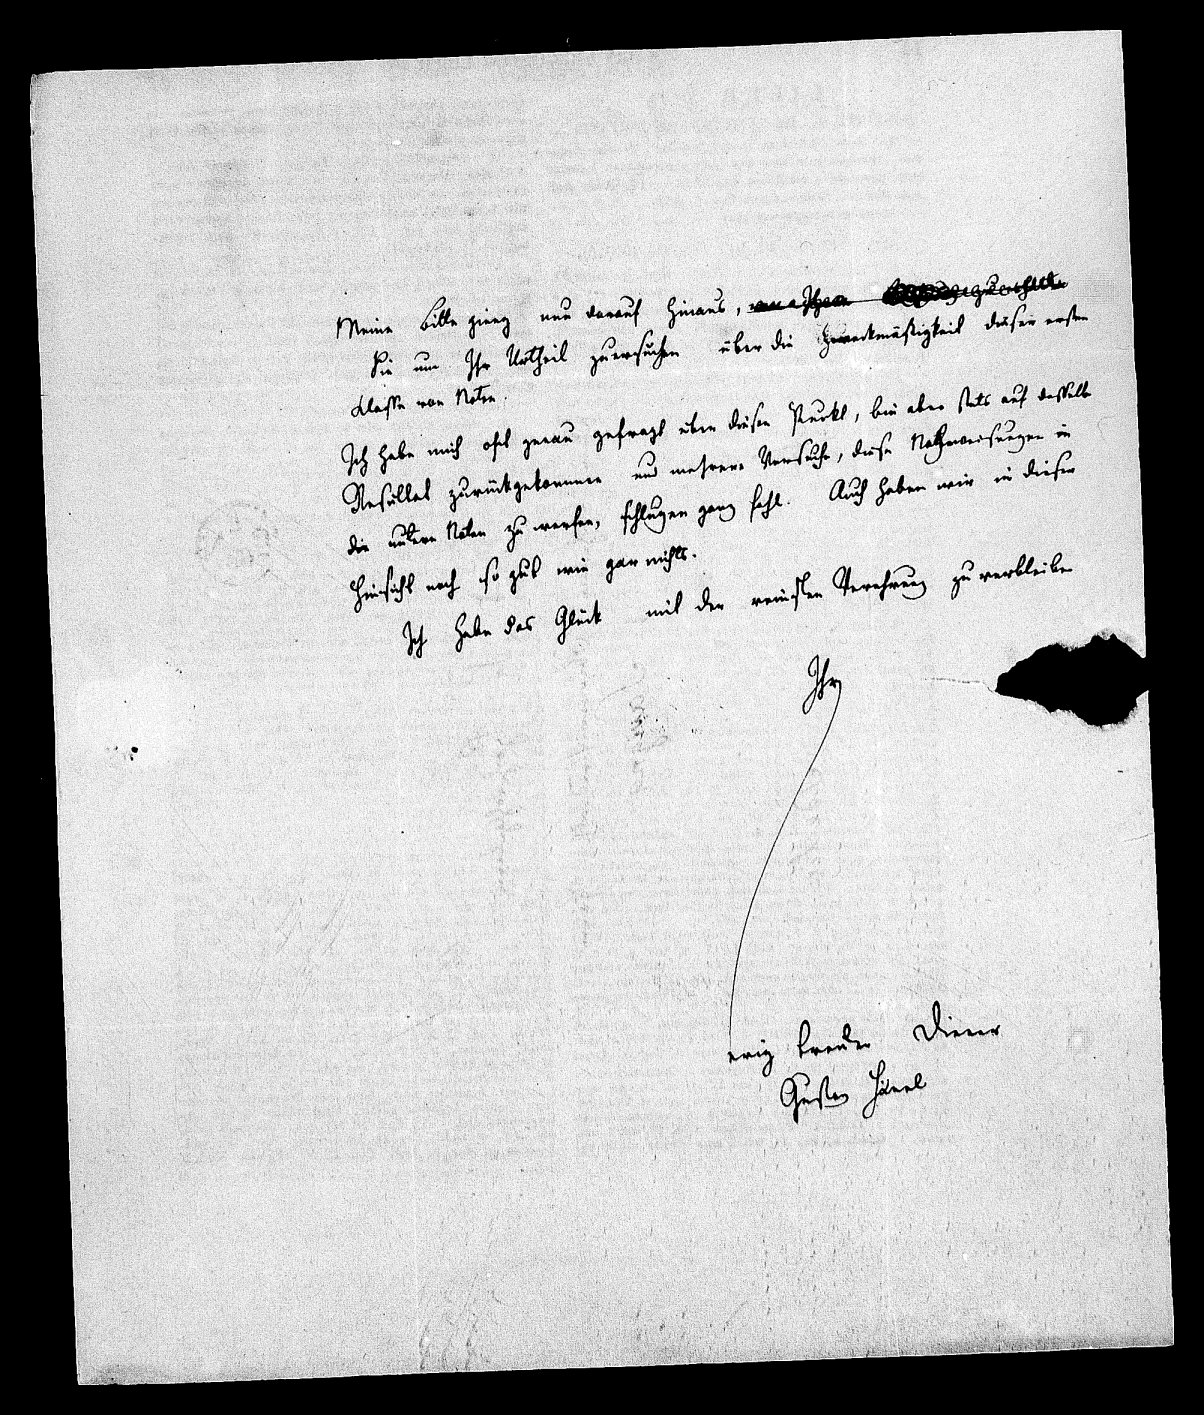 Meine Bitte gieng nun darauf hinaus, von Ihnen
Sie um Ihr Urtheil zu ersuchen über die Zweckmäßigkeit dieser ersten
Classe von Noten.
Ich habe mich oft genau gefragt über diesen Punkt, bin aber stets auf dasselbe
Resultat zurückgekommen und mehrere Versuche, diese Nachweisungen in
die untern Noten zu werfen, schlugen ganz fehl. Auch haben wir in dieser
Hinsicht noch so gut wie gar nichts.
Ich habe das Glück mit der reinsten Verehrung zu verbleiben
Ihr
ewig treuer Diener
Gustav Hänel